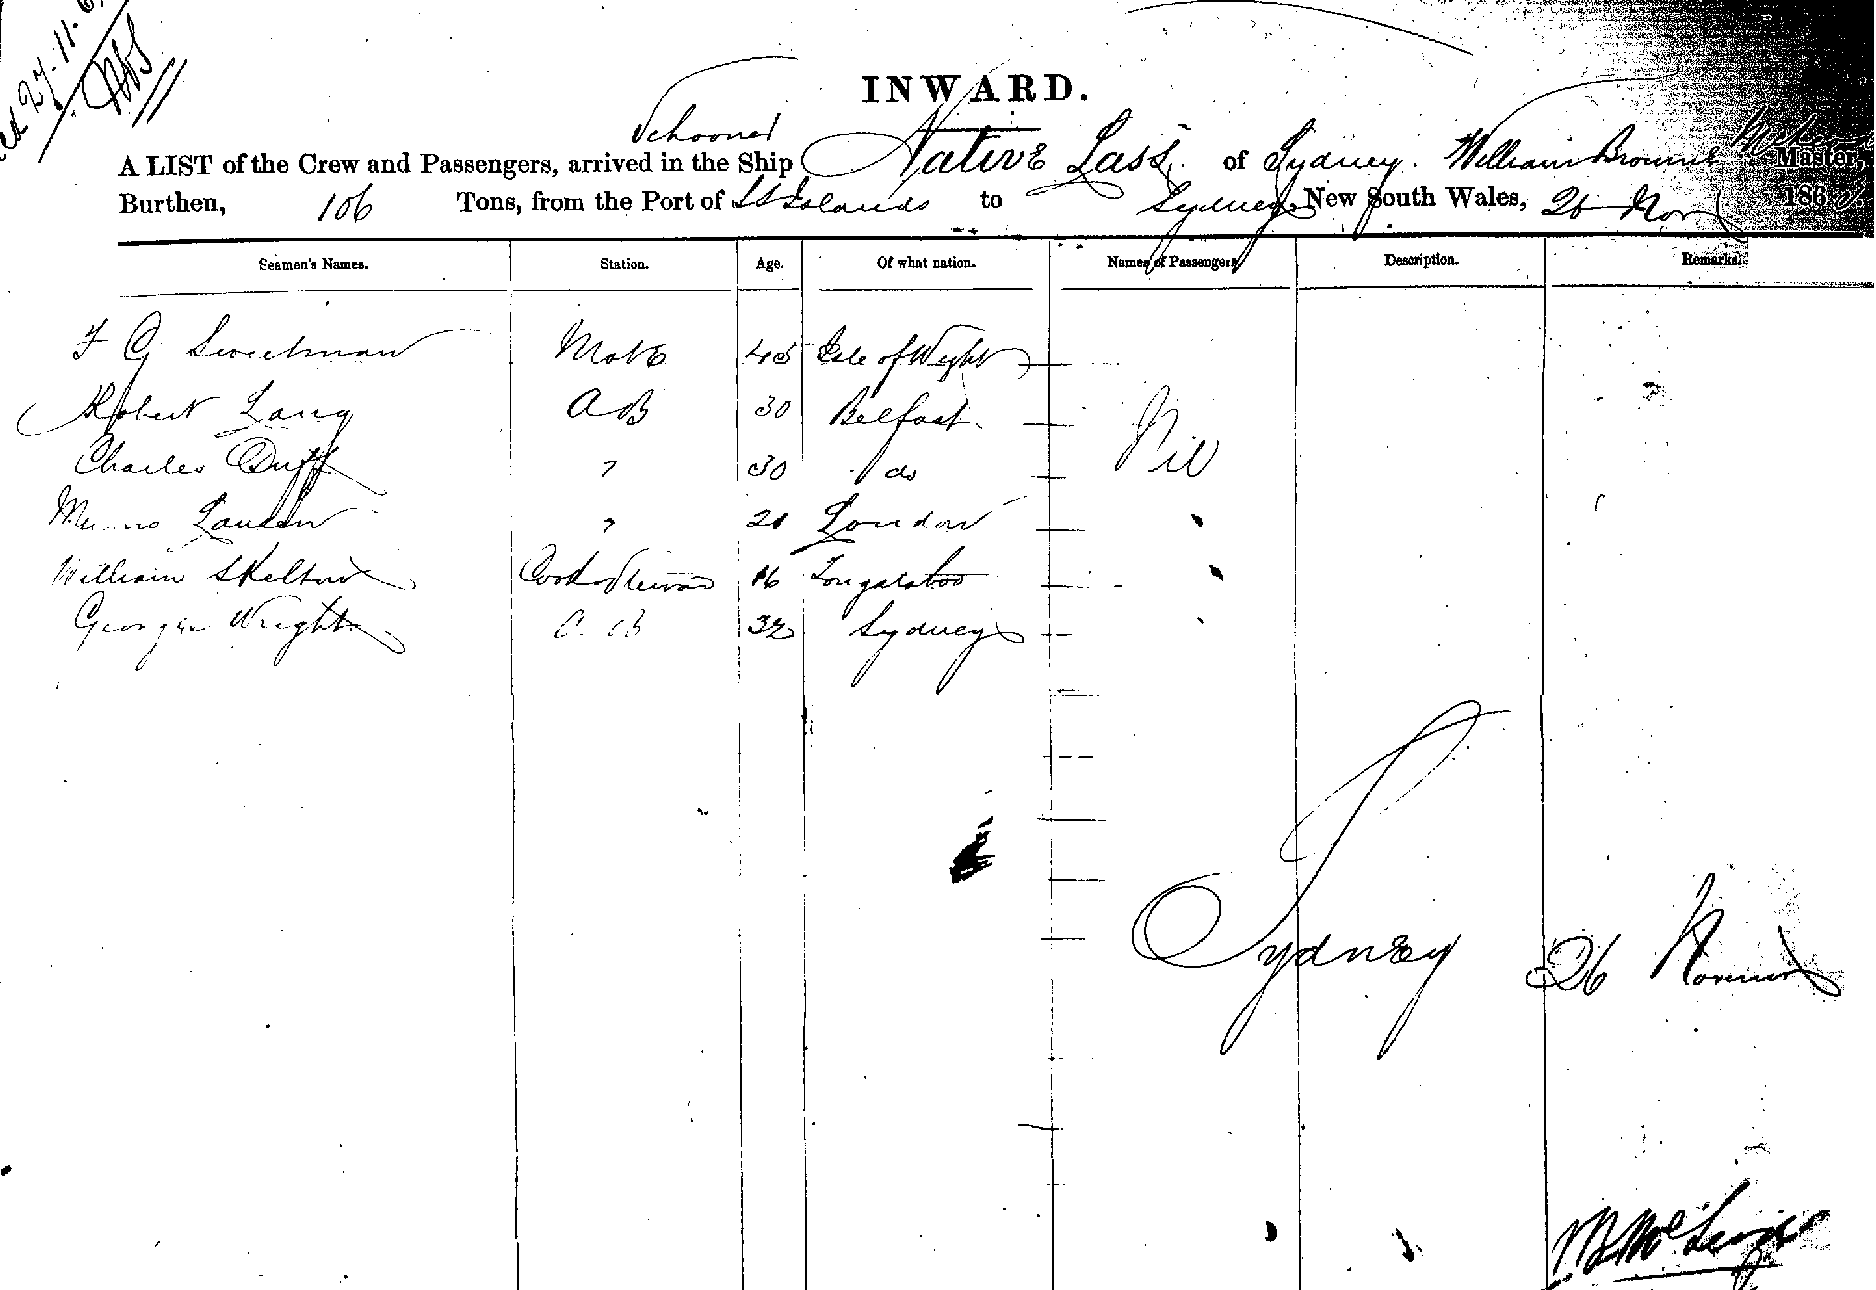 27.11.6
INWARD.
Schooner
A LIST of the Crew and Passengers, arrived in the Ship Native Lass. of Sydney. William Browne Master,
Burthen, 106 Tons, from the Port of Islands to Sydney New South Wales, 26 Nov 186
Seamen's Names. Station. Age. Of what nation. Names of Passengers. Description. Remarks.
F G Sweetman Mate 45 Isle of Wight
Robert Lang AB 30 Belfast. Nil
Charles Duff " 30 do
" 21 London
William Skelton Cook & Steward 16 Tongataboo
George Wright A. B 32 Sydney
Sydney 26